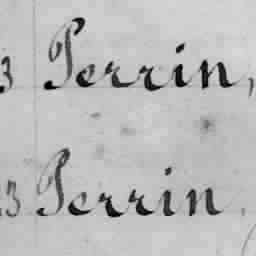 3 Perrin,
3 Perrin.